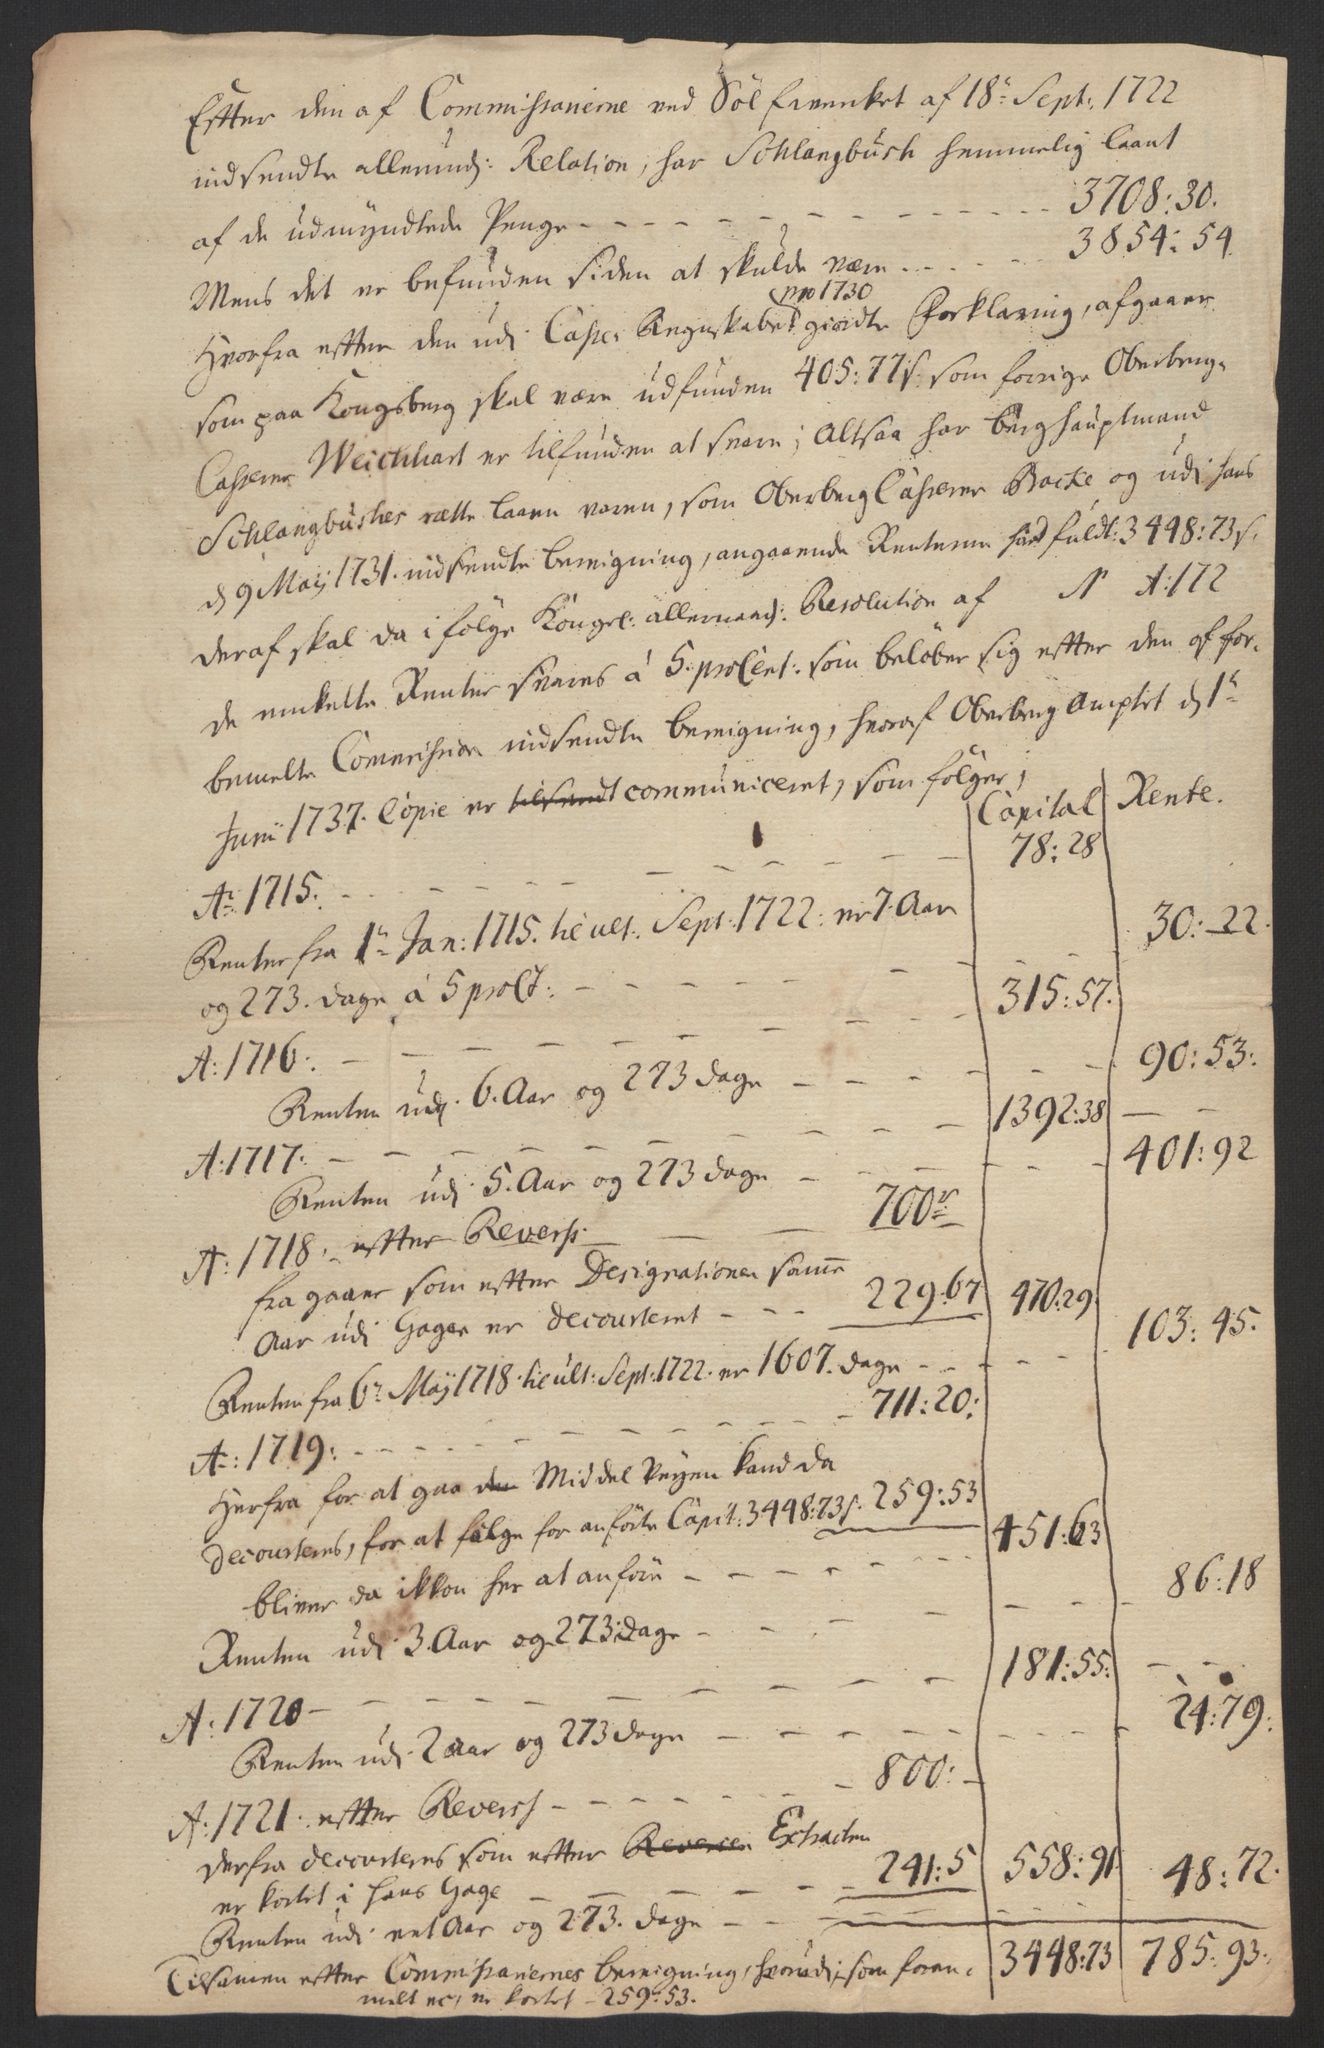 Effter den af Commissarierne ved Sölfwerket af 18de Sept: 1722
indsendte allerund: Relation, har Schlangbusch hemmelig laant
af de udmyndtede Penge - - - - - - - - - 3708:30.
Mens det er befunden siden at skulde være - - - 3854:54.
pro 1730
Hvorfra effter den udi Casse Regnskabet giordte Forklaring, afgaaer
som paa Kongsberg skal være udfunden 405:77 s. som forrige Oberberg-
Casserer Weichhart er tilfunden at svare; Altsaa har Berghauptmand
Schlangbusches rætte Laan været, som OberbergCasserer Backe og udi hans
d 9 Maij 1731. indsendte beregning, angaaende Renterne har fuldt: 3448:73 s.
deraf skal da i fölge Kongel: allernaad: Resolution af N A: 172
de enkelte Renter svares á 5. proCent: som belöber sig effter den af for-
bemelte Commission indsendte beregning, hvoraf Oberberg Amptet d 1te
Junii 1737. Copie er tilsendt communiceret, som fölger;
Capital Rente.
Ao 1715. - - - - - - - 78:28
Renter fra 1te Jan: 1715. til ult: Sept: 1722: er 7. Aar
og 273. dage á 5 proCt: - - - - - 30:22.
A: 1716: - - - - - - - 315:57.
Renten udi 6. Aar og 273 dage - - - - - 90:53:
A: 1717: - - - - - - - 1392:38 - -
Renten udi 5. Aar og 273 dage - - - - - 401:92
A: 1718. effter Revers: - - - 700 r
fra gaaer som effter Designationen samme
Aar udi Gagen er decourteret - - - 229:67 470:29.
Renten fra 6te Maij 1718. til ult: Sept: 1722. er 1607. dage - - - - 103:45.
Ao: 1719: - - - - - - - 711:20:
Herfra for at gaa den Middel Veyen kand da
decourteres, for at fölge for anförte Capit: 3448:73 s. 259:53
bliver da ikkon her at anföre - - - - - - 451:63
Renten udi 3. Aar og 273: dage - - - - - 86:18
A: 1720 - - - - - - - 181:55: - -
Renten udi 2 Aar og 273 dage - - - - - 24:79:
A: 1721. effter Reverss - - - - - 800: -
derfra decourteres som effter Reversen Extracten
er kortet i hans Gage - - - - - 241:5 558:91
Renten udi eet Aar og 273. dage - - - - - 48:72.
Tilsamen effter Commissariernes beregning, hvorudi, som foran- 3448:73 785:93.
melt er, er kortet - 259:53.